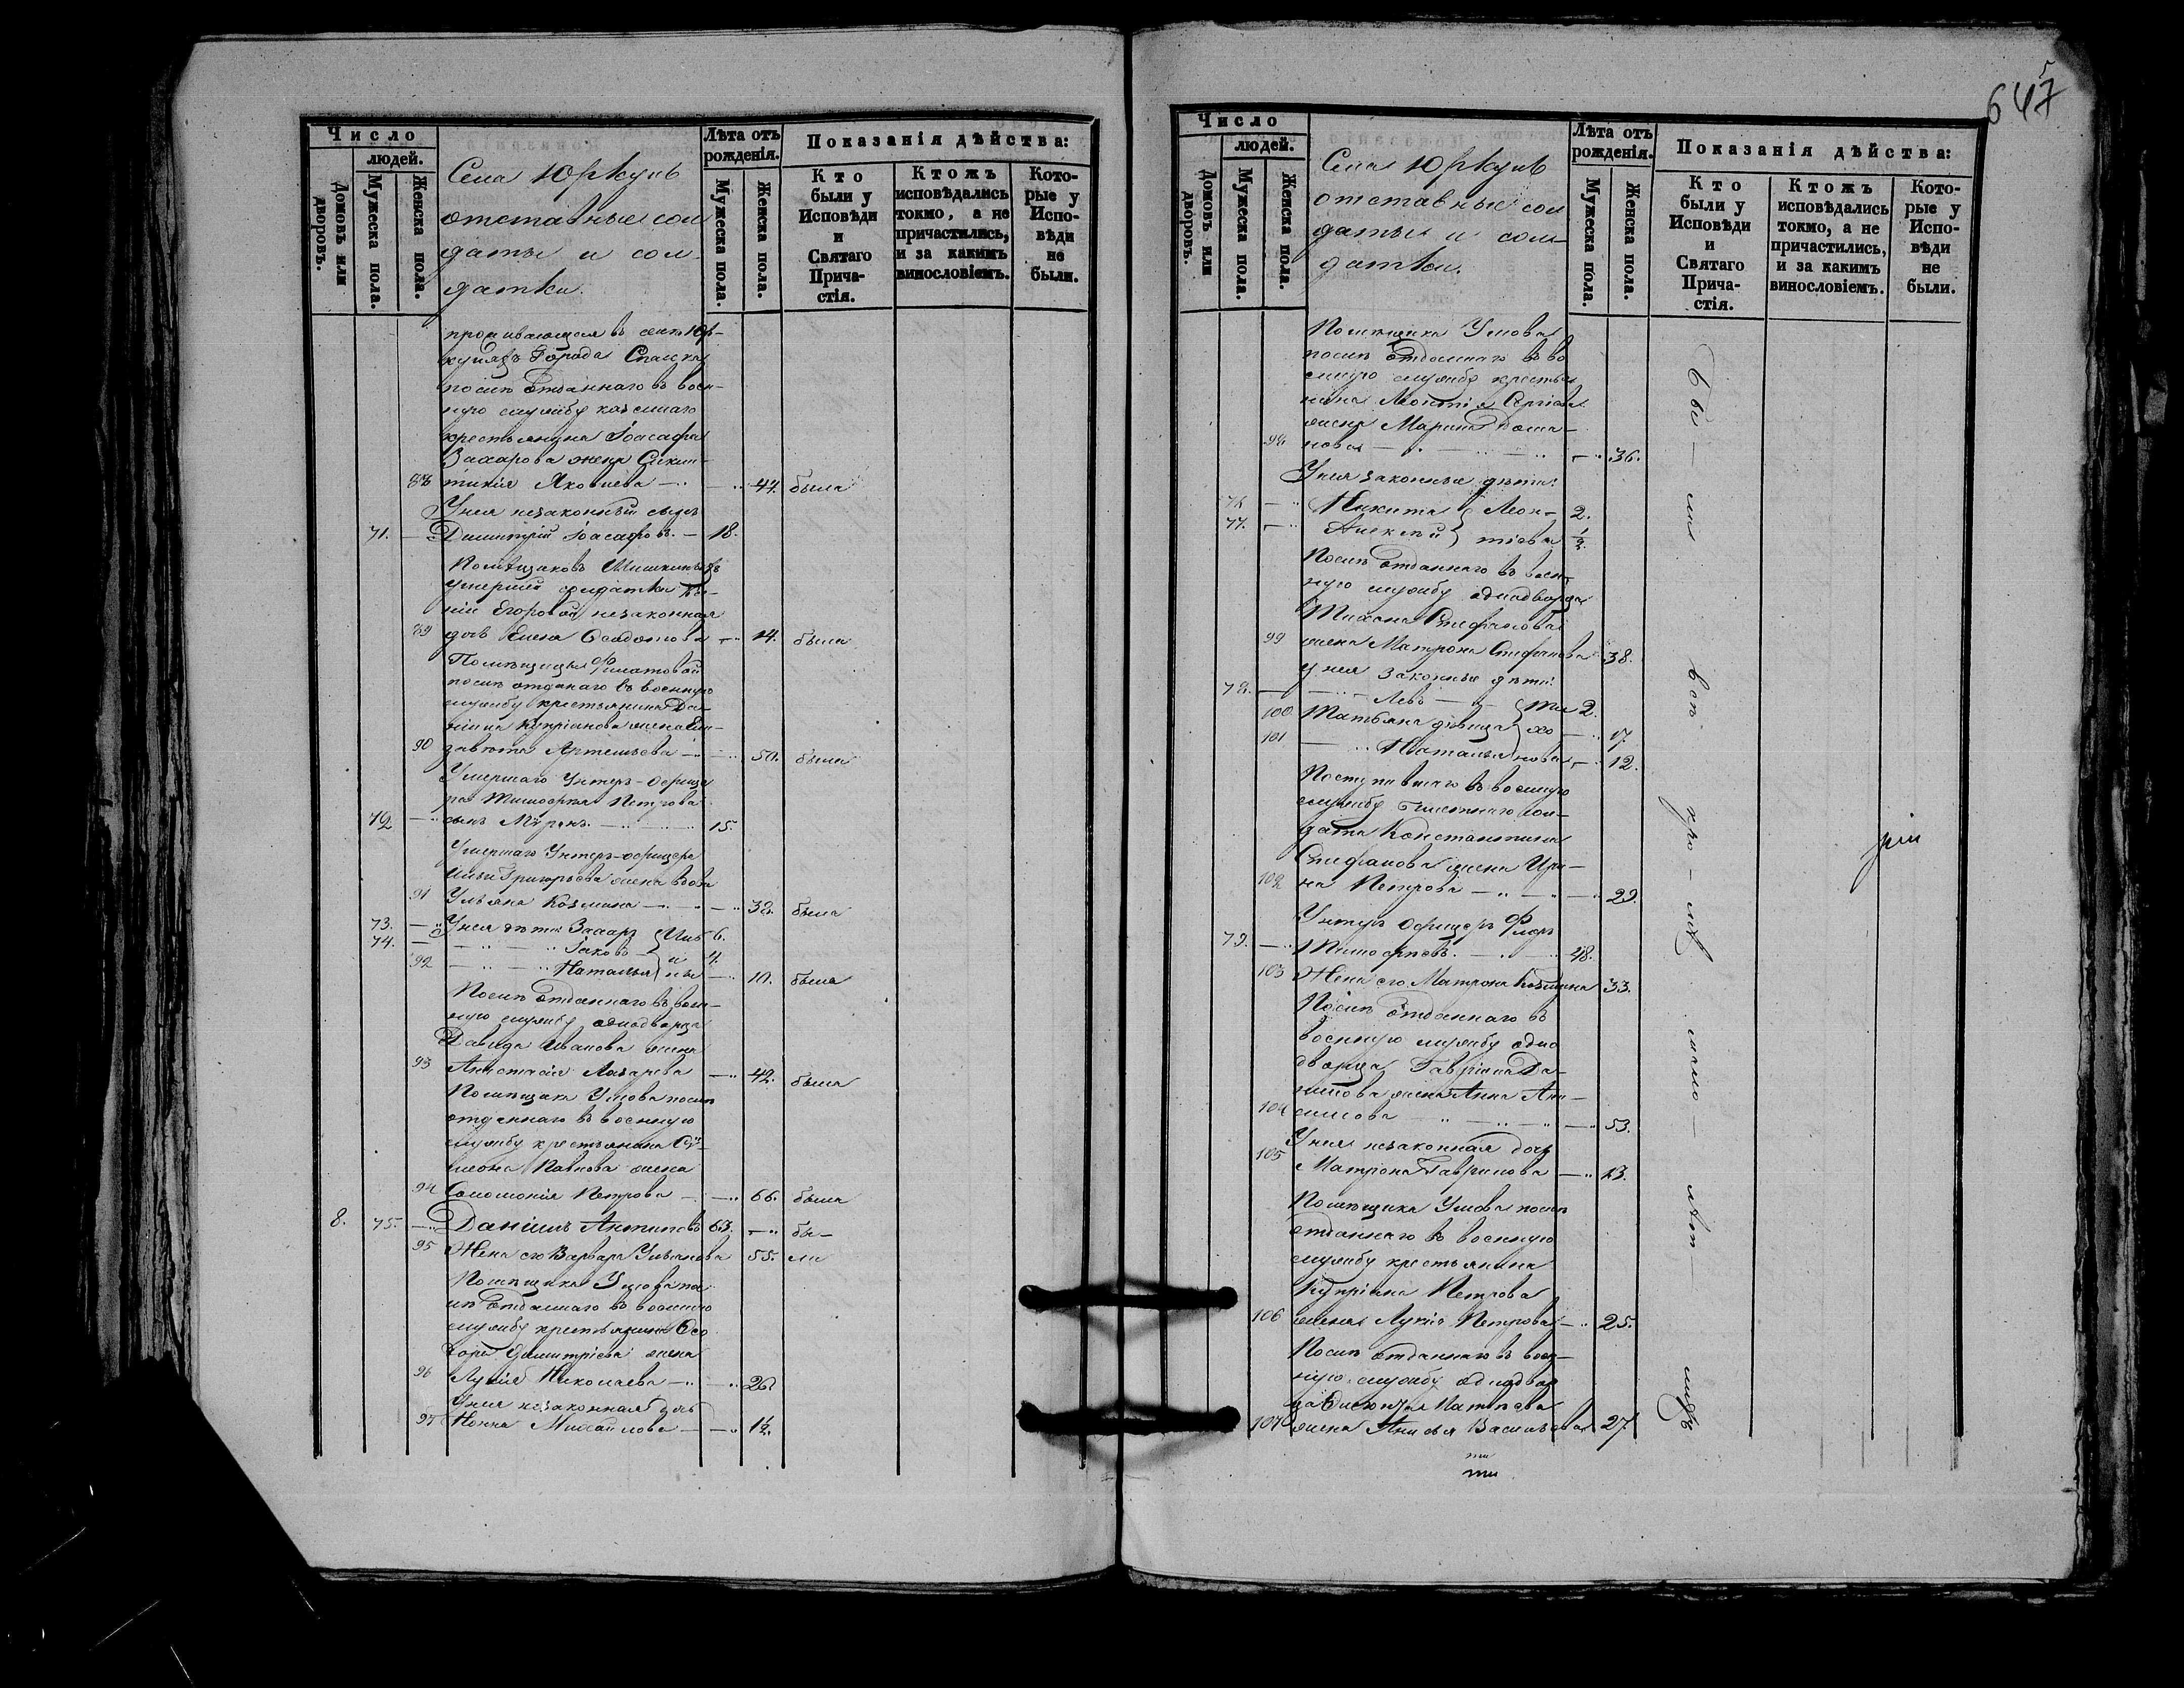 647
5
Число
людей.
Домовъ или дворовъ.
Мужеска пола.
Женска пола.
Села Юркулъ
отставные сол
даты и сол-
датки.
Лѣта отъ рожденія.
Мужеска пола.
Женска пола.
Показанія дѣйства:
Кто были у Исповѣди и Святаго Прича-стія.
Ктожъ исповѣдались токмо, а не причастились, и за какимъ винословіемъ.
Кото-рые у Испо-вѣди не были.
проживающая въ селѣ Юр-
куляхъ Города Спаска
послѣ отданнаго въ воен-
ную службу казеннаго
крестьянина Іоасафа
Захарова жена
88 Яковлева 47. была
У нея незаконный сынъ
71. Димитрій Іоасафовъ. 18.
Помѣщиковъ
умершей солдатки
Егоровой незаконная
89 дочь Елена Ѳеодотова 14. была
Помѣщицы Филатовой
послѣ отданаго въ военную
службу крестьянина Да-
ніила Купріанова жена Ели-
90 завѣта Артемьева 50. была
Умершаго Унтеръ-офице
ра Тимоѳея Петрова
72 сынъ 15.
Умершаго Унтеръ-офицера
Ильи Григорьева жена вдова
91 Ульяна Козмина 38. была
73. У нея дѣти Захаръ Иль 6.
74. Іаковъ и 4.
92 Наталья ны 10. была
Послѣ отданнаго въ воен-
ную службу однодворца
Давида Иванова жена
93 Анастасія Лазарева 42. была
Помѣщика Умова послѣ
отданнаго въ военную
службу крестьянина Си-
меона Павлова жена
94 Соломонія Петрова 66. была
8. 75. Даніилъ Антиповъ 63. бы-
95 Жена его Варвара Ульянова 55. ли
Помѣщика Умова пос
лѣ отданнаго въ военную
службу крестьянина Ѳео
дора Димитріева жена
96 Лукія Николаева 26.
У нея незаконная дочь
97 Нонна Михайлова 1/2.
Число
людей.
Домовъ или дворовъ.
Мужеска пола.
Женска пола.
Села Юркулъ
отставные сол
даты и сол-
датки.
Лѣта отъ рожденія.
Мужеска пола.
Женска пола.
Показанія дѣйства:
Кто были у Исповѣди и Святаго Прича-стія.
Ктожъ исповѣдались токмо, а не причастились, и за какимъ винословіемъ.
Кото-рые у Испо-вѣди не были.
Помѣщика Умова
послѣ отданнаго въ во
енную службу крестья
нина Леонтія Сергіева
жена Марина Рома-
98 нова 36.
У нея законные дѣти:
76 Никита Леон- 2.
77. Алексѣй тіевы 1/2.
Послѣ отданнаго въ воен-
ную службу однодворца
Тихона Стефанова
99 жена Матрона Стефанова 38.
У нея законные дѣти:
78. Левъ Ти 2.
100 Татьяна дѣвица хо 17.
101 Наталья новы 12.
Поступившаго въ военную
службу сол-
дата Константина
Стефанова жена Ири-
102 на Петрова 29.
Унтеръ офицеръ Флоръ
79. Тимоѳеевъ. 48.
103 Жена его Матрона Козмина 33.
Послѣ отданнаго въ
военную службу одно
дворца Гавріила Да-
нилова жена Анна Ани-
104 симова 53.
У нея незаконная дочь
105 Матрона Гаврилова 13.
Помѣщика Умова послѣ
отданнаго въ военную
службу крестьянина
Купріана Петрова
106 жена Лукія Петрова 25.
Послѣ отданнаго въ воен-
ную службу однодвор
ца Патѣева
107 жена Анисья Васильева 27.